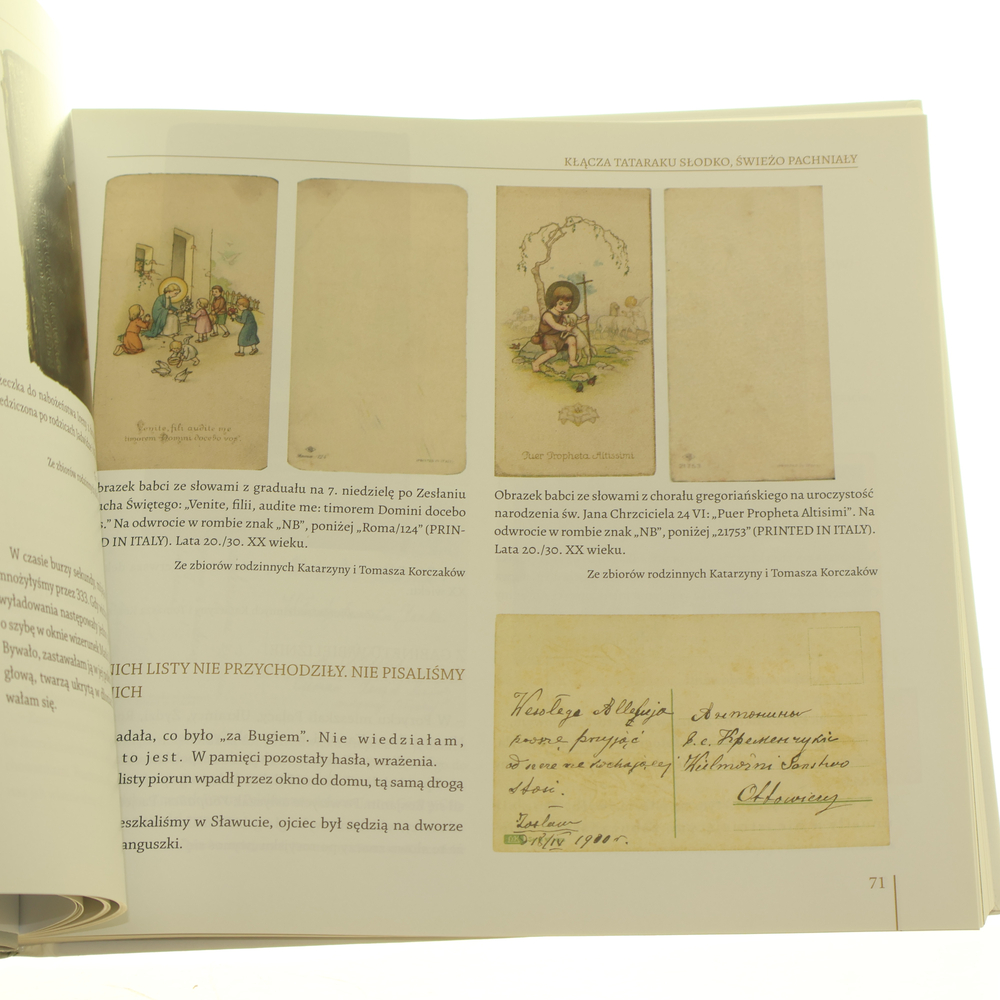 KŁĄCZA TATARAKU SŁODKO, ŚWIEŻO PACHNIAŁY
Venite, filii audite me
timorem Domini docebo vos.
Puer Propheta Altissimi
brazek babci ze słowami z graduału na 7. niedzielę po Zesłaniu
ucha Świętego: „Venite, filii, audite me: timorem Domini docebo
s.” Na odwrocie w rombie znak „NB”, poniżej „Roma/124” (PRIN-
D IN ITALY). Lata 20./30. XX wieku.
Ze zbiorów rodzinnych Katarzyny i Tomasza Korczaków
Obrazek babci ze słowami z chorału gregoriańskiego na uroczystość
narodzenia św. Jana Chrzciciela 24 VI: „Puer Propheta Altisimi”. Na
odwrocie w rombie znak „NB”, poniżej „21753” (PRINTED IN ITALY).
Lata 20./30. XX wieku.
Ze zbiorów rodzinnych Katarzyny i Tomasza Korczaków
NICH LISTY NIE PRZYCHODZIŁY. NIE PISALIŚMY
NICH
adała, co było „za Bugiem”. Nie wiedziałam,
to jest. W pamięci pozostały hasła, wrażenia.
listy piorun wpadł przez okno do domu, tą samą drogą
eszkaliśmy w Sławucie, ojciec był sędzią na dworze
anguszki.
Wesołego Alleluja
proszę przyjąć
od szczerze kochającej
Stosi.
Zasław
18/IV 1900 r.
Антонины
в.с. Кременчуки
Wielmożni Państwo
Ottowiczy
71
zeczka do nabożeństwa
edziczona po rodzicach
Ze zbiorów
W czasie burzy sekundy
mnożyłyśmy przez 333. Gdy
wyładowania następowały
o szybę w oknie wizerunek
Bywało, zastawałam ją w
głową, twarzą ukrytą w
wałam się.